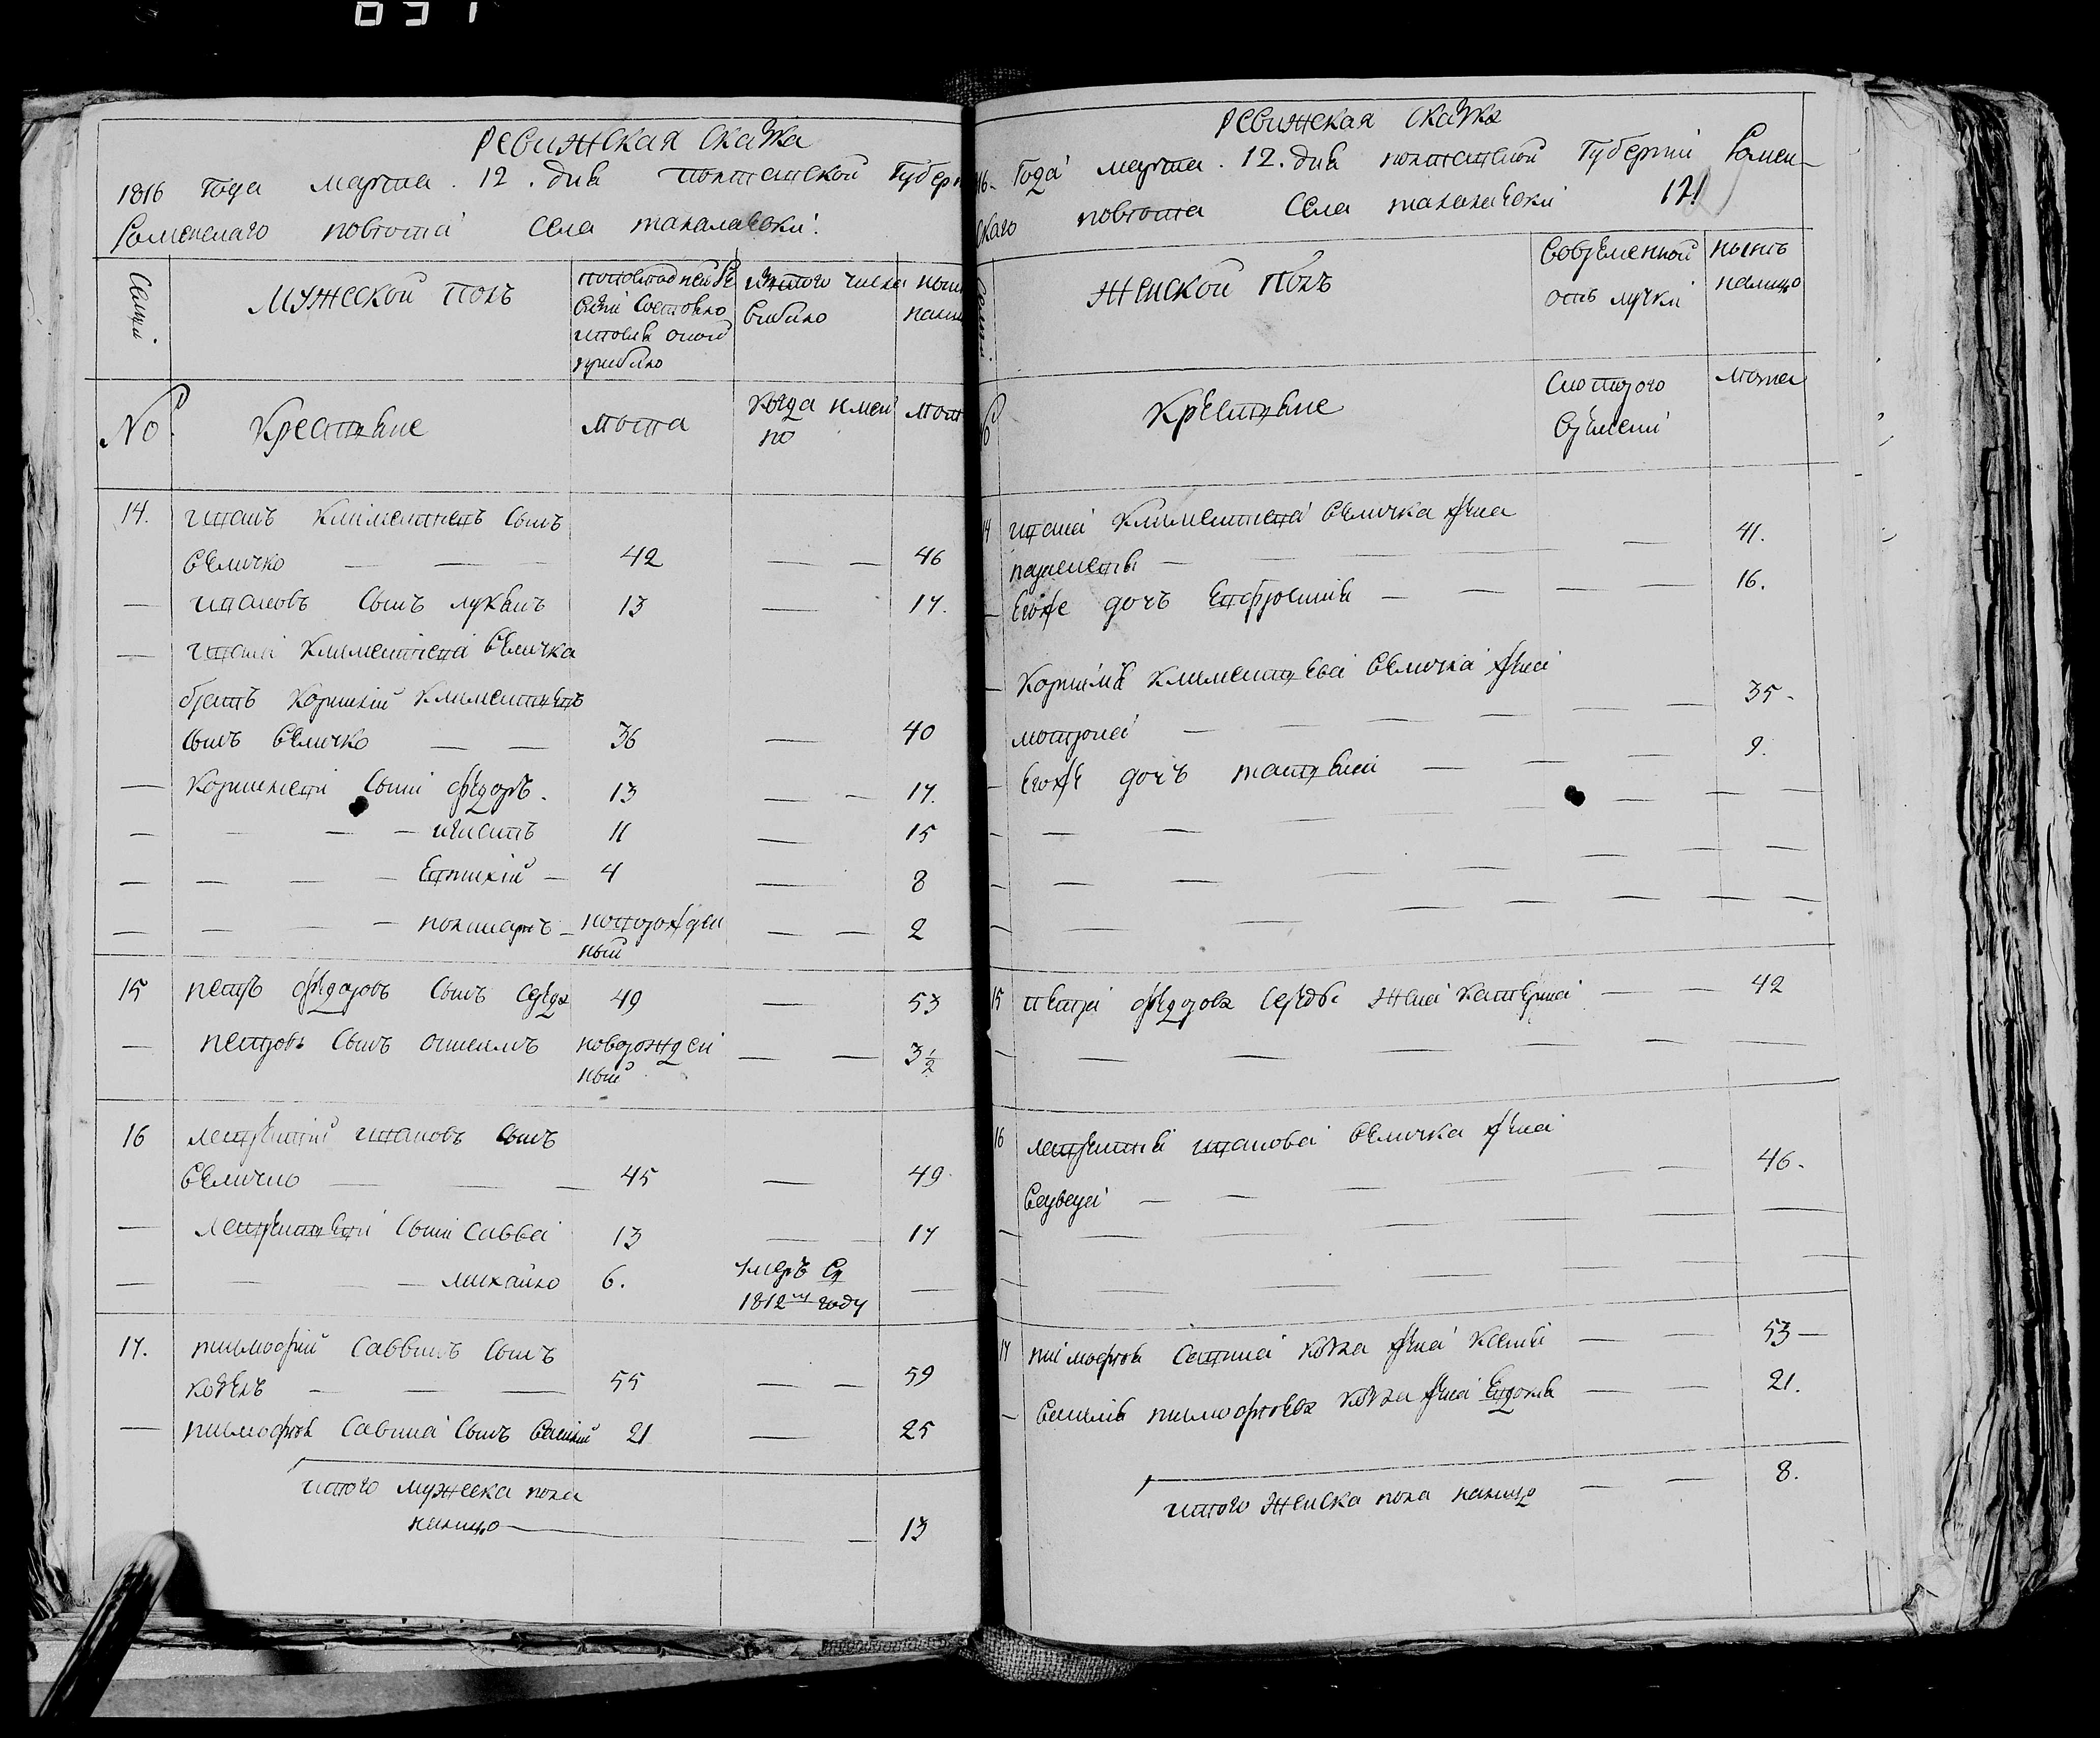 Ревижская скаска
1816 года марта 12. дня полтавской Губерн
Роменскаго повѣта села талалаевки.
Семьи.
мужеской полъ
попоследней ре
визiи состояло
ипослѣ оной
прибыло
изтого числа
выбыло
ныне
налиц
No
Крестяне
лѣта
когда имен
но
лѣт
14.
иванъ Климентиевъ сынъ
величко — — — 42 — — 46
— ивановъ сынъ лукянъ 13 — 17.
— ивана Климентиева величка
братъ корнилий Климентиевъ
сынъ величко — — 36 — 40
— корнилиевы сыни федоръ. 13 — — 17.
— — — — игнатъ 11 — 15
— — — — Евтихiй — 4 — 8
— — — — поликарпъ — новорожден
ный — — 2
15 петръ федоровъ сынъ середа 49 — 53
— петровъ сынъ новорожден
ный — — 3 1/2
16 леврентий ивановъ сынъ
величко — — — 45 — 49
— леврентиевы сыни савва 13 — — 17
— — — михайло 6. умеръ въ
1812мъ году —
17. тимофiй саввинъ сынъ
козелъ — — — 55 — — 59
— тимофѣя савина сынъ василий 21 — 25
итого мужеска пола
налицо — — 13
Ревижская скаска
16- года марта. 12. дня полтавской Губернiи Ромен-
скаго повѣта села талалаевки 121
семьи
женской полъ
вовременной
отлучки
нынѣ
налицо
Крестяне
скоторого
времени
лѣта
14 ивана Климентиева величка жена
параскевия — — — 41.
— егоже дочъ Евфросиния — — — — 16.
— корнилия климентиева величка жена
мотрона — — — — — 35-
— егоже дочъ татияна — — — 9.
15 петра федорова середы жена катерина — — 42
16 леврентия иванова величка жена
— — — — — 46.
17 тимофѣя савина козла жена ксения — — 53 —
— василия тимофѣева козла жена Евдокия — — 21.
итого женска пола налицо — — 8.